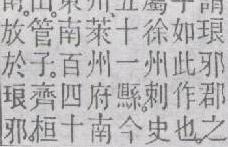 謂琅邪郡之
如此作也。
屬徐州刺史
五十一縣。今
州萊州府南
東南百四十
山。管子。齊桓
放於琅邪。